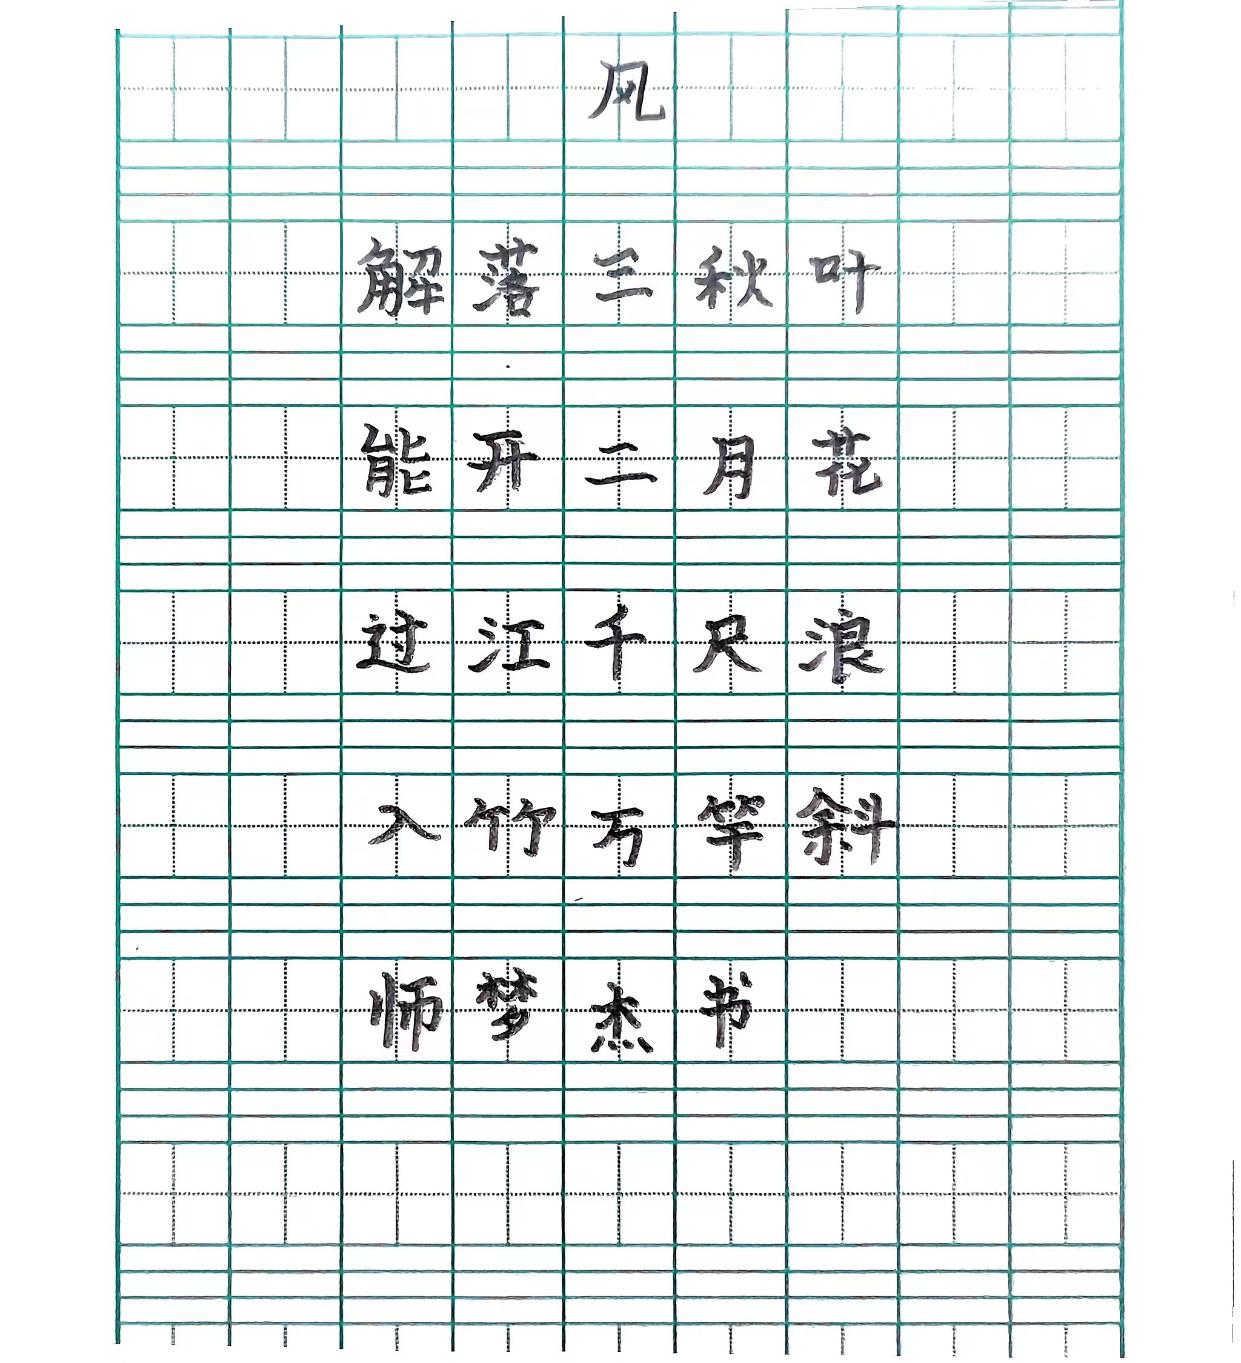 风
解落三秋叶
能开二月花
过江千尺浪
入竹万竿斜
师梦杰书